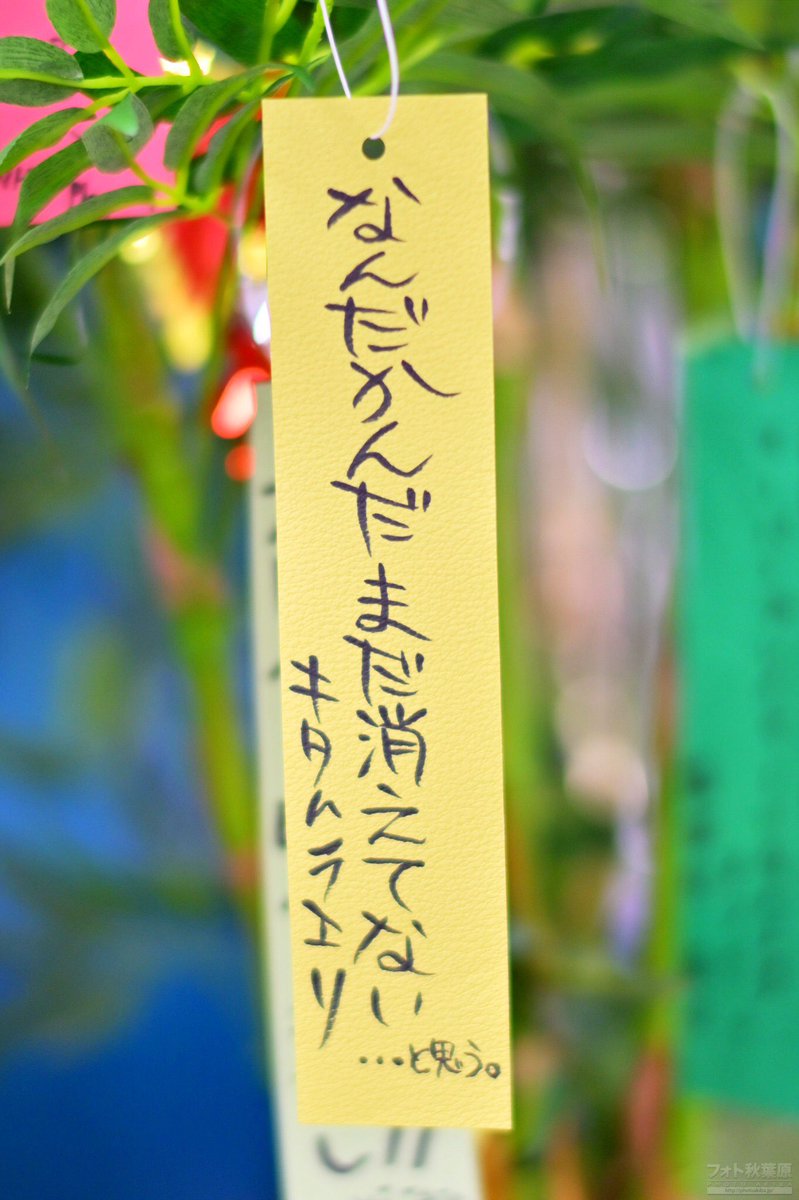 なんだかんだまだ消えてない
…と思う。
キタムラエリ
フォト秋葉原